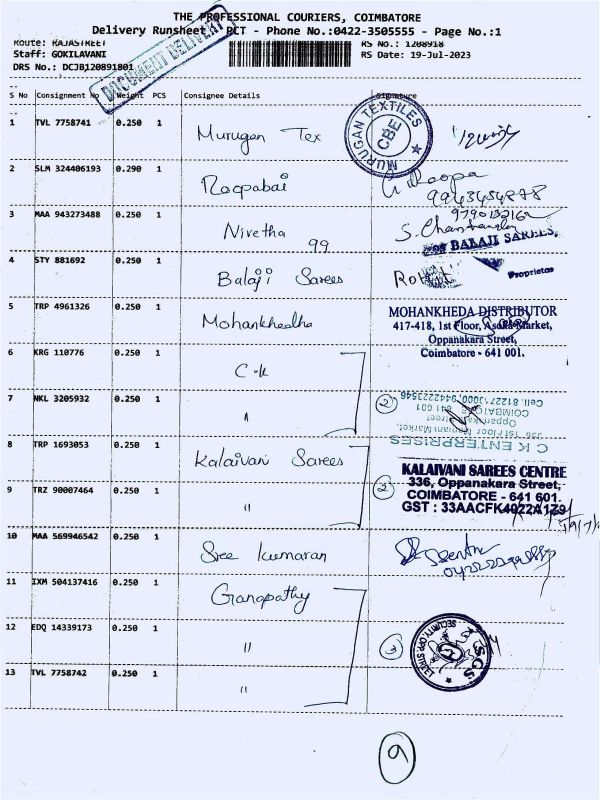 THE PROFESSIONAL COURIERS, COIMBATORE
Delivery Runsheet PCT - Phone No.:0422-3505555 - Page No.:1
DOCUMENT DELIVERY
Route: RAJASTREET RS No.: 1208918
Staff: GOKILAVANI RS Date: 19-Jul-2023
DRS No.: DCJB120891801
S No Consignment No Weight PCS Consignee Details Signature
1 TVL 7758741 0.250 1 Murugan Tex
MURUGAN TEXTILES
CBE
2 SLM 324406193 0.290 1 Roopabai G. Roopa
9943454878
3 MAA 943273488 0.250 1 Nivetha 99
9790132162
4 STY 881692 0.250 1 Balaji Sarees
BALAJI SAREES,
Proprietor
5 TRP 4961326 0.250 1 Mohankhedha
MOHANKHEDA DISTRIBUTOR
417-418, 1st Floor, Asoka Market,
Oppanakara Street,
Coimbatore - 641 001.
6 KRG 110776 0.250 1 C.K
7 NKL 3205932 0.250 1 "
2
C K ENTERPRISES
COIMBATORE 641 001
8 TRP 1693053 0.250 1 Kalaivani Sarees
9 TRZ 90007464 0.250 1 "
2
KALAIVANI SAREES CENTRE
336, Oppanakara Street,
COIMBATORE - 641 601.
GST : 33AACFK4022A1Z9
10 MAA 569946542 0.250 1 Sree kumaran
11 IXM 504137416 0.250 1 Ganapathy
12 EDQ 14339173 0.250 1 "
3
SGS
13 TVL 7758742 0.250 1 "
9